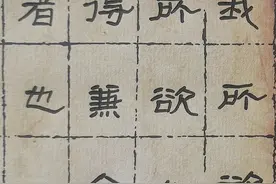 我所
所欲
得兼
者也